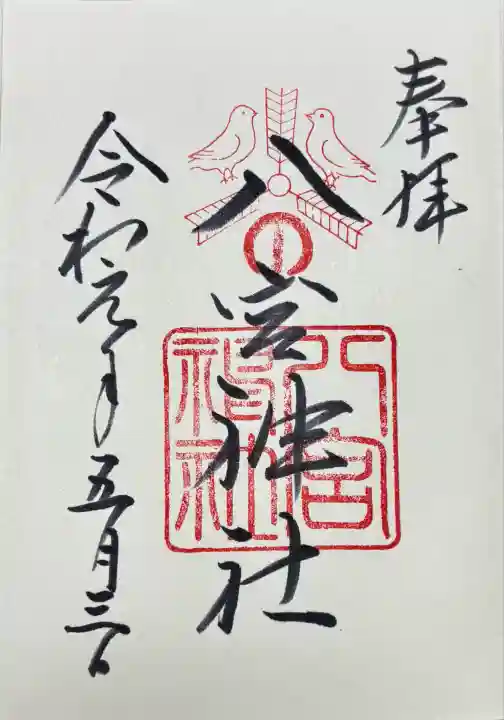 奉拝
八宮神社
八宮神社
令和元年五月三日